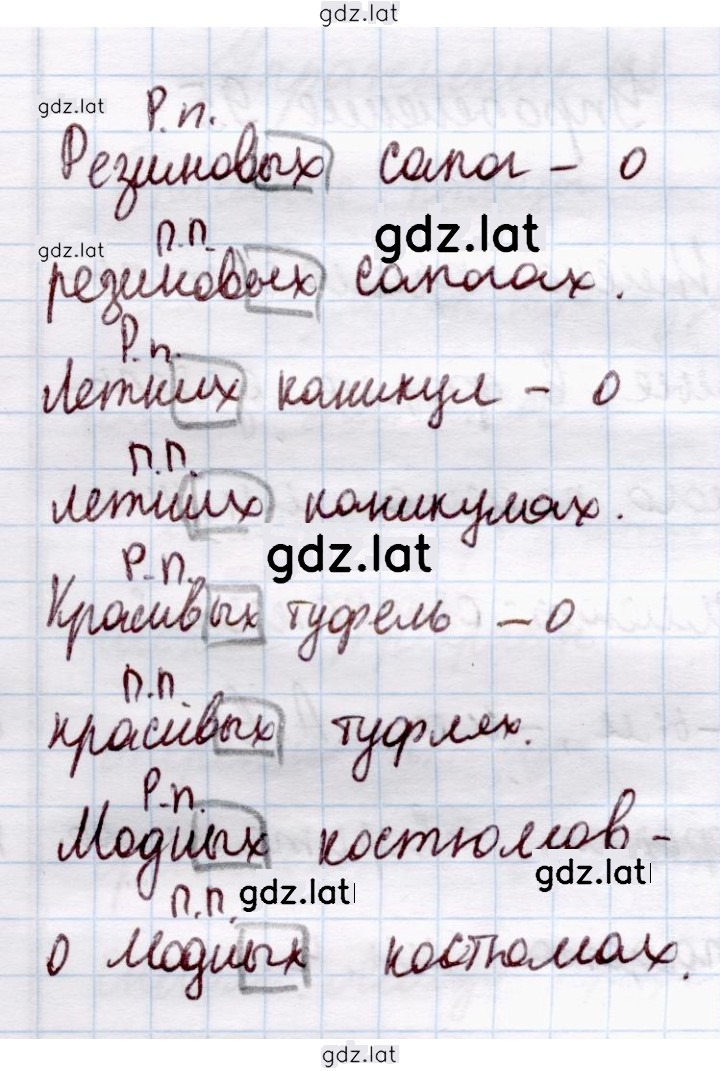 gdz.lat
gdz.lat
Р.п.
Резиновых сапог – о
gdz.lat
gdz.lat
П.п.
резиновых сапогах.
Р.п.
Летних каникул – о
П.П.
летних каникулах.
gdz.lat
Р.п.
Красивых туфель – о
П.п
красивых туфлях.
Р.п.
Модных костюмов –
gdz.lat
gdz.lat
П.п.
о модных костюмах.
gdz.lat